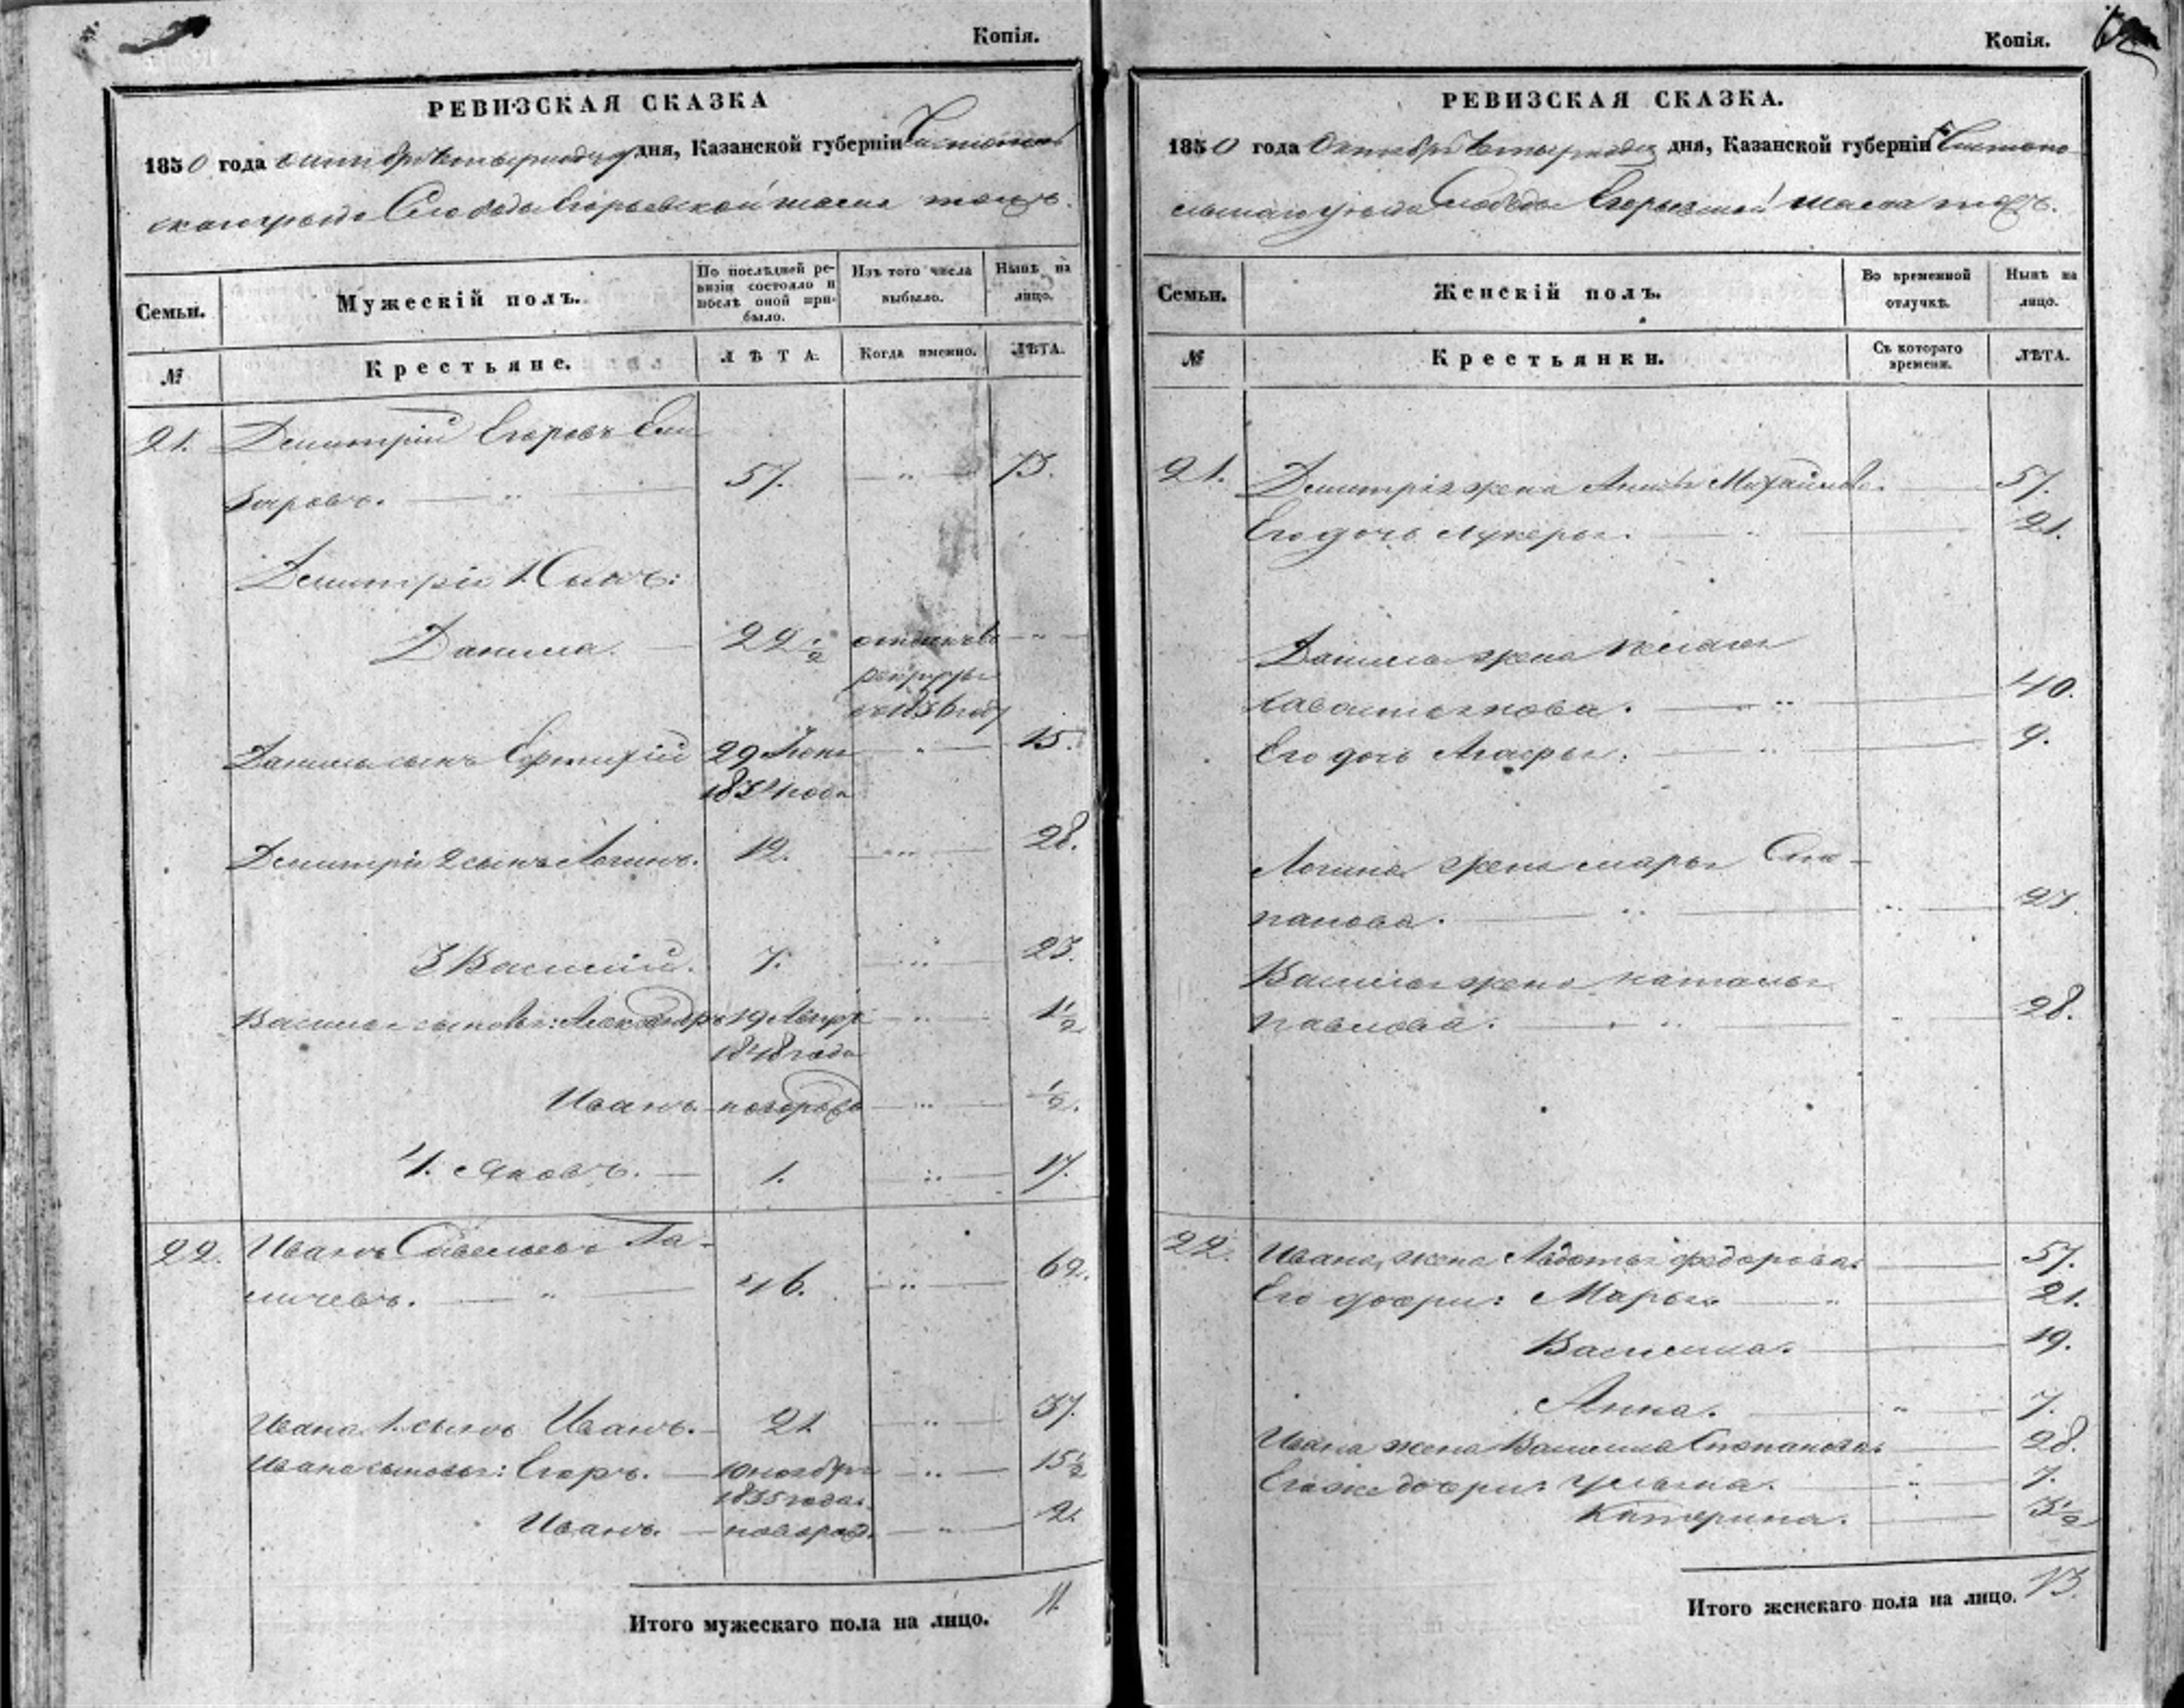 Копія.
РЕВИЗСКАЯ СКАЗКА
1850 года дня, Казанской губерніи
Слободы Егорьевской
Семьи.
Мужескій полъ.
По послѣдней ре-
визіи состояло и
послѣ оной при-
было.
Изъ того числа
выбыло.
Нынѣ на
лицо.
№
Крестьяне.
ЛѢТА.
Когда именно.
ЛѢТА.
21. Дмитрій Егоровъ
57. — " — 73.
Дмитрія 1. Сынъ:
Данила. — 22 1/2 отданъ въ — " —
рекруты
въ 1836 году
Данилы сынъ 29 — " — 15.
1834 года
Дмитрія 2 сынъ Логинъ. 12. — " — 28.
3 Василій. 7. — " — 23.
Василья сыновья: Александръ 19 — " — 1 1/2
1848 года
Иванъ. — новорожд — " — 1/2.
4. Яковъ. — 1. — " — 17.
22. Иванъ Савельевъ Га-
личевъ. — " — 46. — " — 62.
Ивана 1. сынъ Иванъ. — 21 — " — 37.
Ивана сыновья: Егоръ. — 10 ноября — " — 15 1/2
1835 года.
Иванъ. — новорожд. — " — 2.
Итого мужескаго пола на лицо. 11.
Копія.
РЕВИЗСКАЯ СКАЗКА.
1850 года Октября дня, Казанской губерніи Чистопо-
льскаго уѣзда Слободы Егорьевской
Семьи.
Женскій полъ.
Во временной
отлучкѣ.
Нынѣ на
лицо.
№
Крестьянки.
Съ котораго
времени.
ЛѢТА.
21. Дмитрія жена Михайлова. — 57.
Его дочь Лукерья. — " — 21.
Данилы жена
40.
Его дочь — " — 9.
Логина жена Марья Сте-
панова. — " — 27.
Василья жена Наталья
Павлова. — " — 28.
22. Ивана жена Авдотья Федорова. — 57.
Его дочери: Марья — " — 21.
Василиса. — 19.
Анна. — " — 7.
Ивана жена Василиса Степанова. — 28.
Его же дочери: Ульяна. — " — 7.
Катерина. — 3 1/2
Итого женскаго пола на лицо. 13.